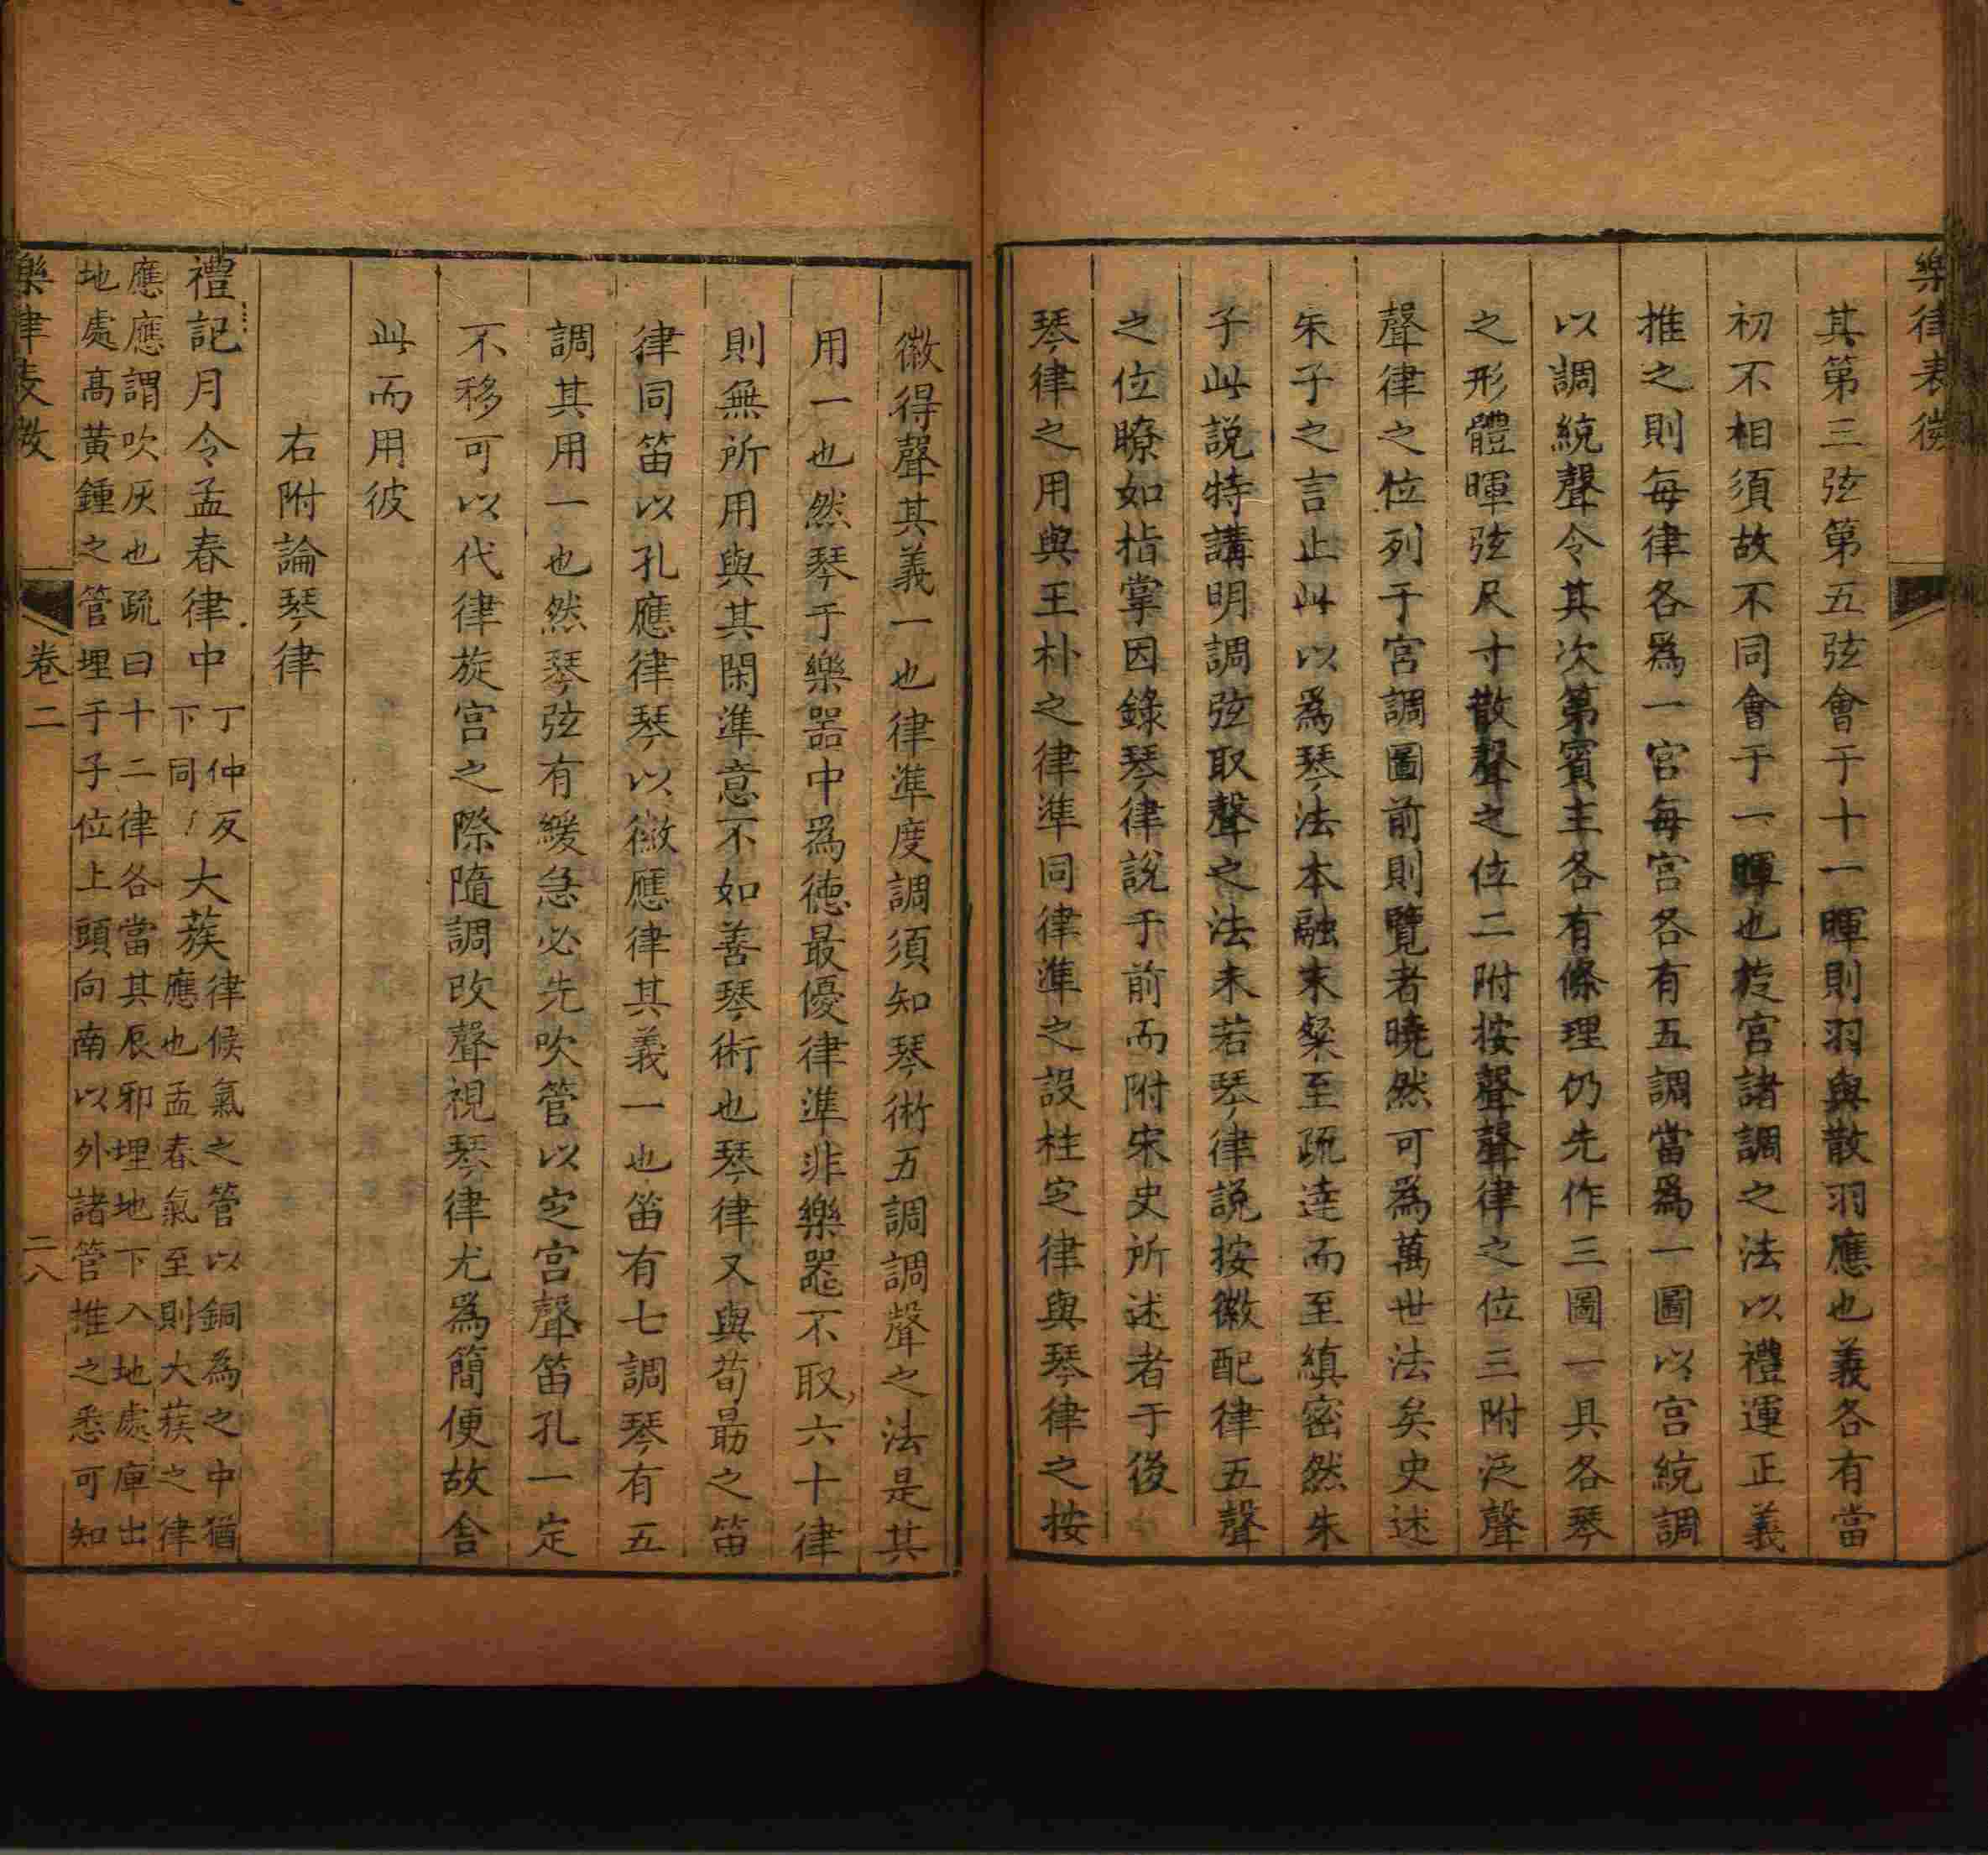 樂律表微
其第三弦第五弦會于十一暉則羽與散羽應也義各有當
初不相須故不同會于一暉也旋宮諸調之法以禮運正義
推之則每律各爲一宮每宮各有五調當爲一圖以宮統調
以調統聲令其次第賓主各有條理仍先作三圖一具各琴
之形體暉弦尺寸散聲之位二附按聲聲律之位三附泛聲
聲律之位列于宮調圖前則覽者曉然可爲萬世法矣史述
朱子之言止此以爲琴法本融末粲至疏達而至縝密然朱
子此説特講明調弦取聲之法未若琴律説按徽配律五聲
之位瞭如指掌因錄琴律説于前而附宋史所述者于後
琴律之用與王朴之律準同律準之設柱定律與琴律之按
徽得聲其義一也律準度調須知琴術五調調聲之法是其
用一也然琴于樂器中爲德最優律準非樂器不取六十律
則無所用與其閑準意不如善琴術也琴律又與荀勗之笛
律同笛以孔應律琴以徽應律其義一也笛有七調琴有五
調其用一也然琴弦有緩急必先吹管以定宮聲笛孔一定
不移可以代律旋宮之際隨調改聲視琴律尤爲簡便故舍
此而用彼
右附論琴律
禮記月令孟春律中
丁仲反
下同
大蔟
律候氣之管以銅為之中猶
應也孟春氣至則大蔟之律
應應謂吹灰也疏曰十二律各當其辰邪埋地下入地處庳出
地處高黃鍾之管埋于子位上頭向南以外諸管推之悉可知
樂律表微
卷二
二八